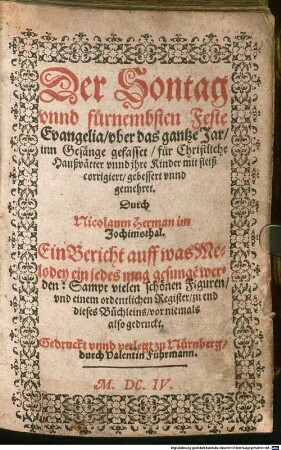 Der Sontag
vnnd fürnembsten Feste
Evangelia/vber das gantze Jar/
inn Gesänge gefasset/für Christliche
Haußväter vnnd ihre Kinder mit fleiß
corrigiert/gebessert vnnd
gemehret.
Durch
Nicolaum Herman im
Jochimsthal.
Ein Bericht auff was Me-
lodey ein jedes mag gesungē wer-
den: Sampt vielen schönen Figuren/
vnd einem ordentlichen Register/zu end
dieses Büchleins/vor niemals
also gedruckt.
Gedruckt vnnd verlegt zu Nürnberg/
durch Valentin Fuhrmann.
M. DC. IV.